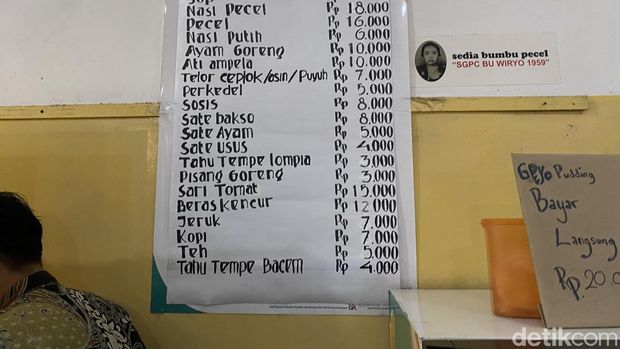 Sop
Nasi Pecel Rp 18.000
Pecel Rp 16.000
Nasi Putih Rp 6.000
Ayam Goreng Rp 10.000
Ati ampela Rp 10.000
Telor ceplok/asin/Puyuh Rp 7.000
Perkedel Rp 5.000
Sosis Rp 8.000
Sate bakso Rp 8.000
Sate Ayam Rp 5.000
Sate usus Rp 4.000
Tahu Tempe lompia Rp 3.000
Pisang Goreng Rp 3.000
Sari Tomat Rp 15.000
Beras kencur Rp 12.000
Jeruk Rp 7.000
Kopi Rp 7.000
Teh Rp 5.000
Tahu Tempe Bacem Rp 4.000
sedia bumbu pecel
"SGPC BU WIRYO 1959"
Pudding
Bayar
Langsung
Rp. 20.0
detikcom